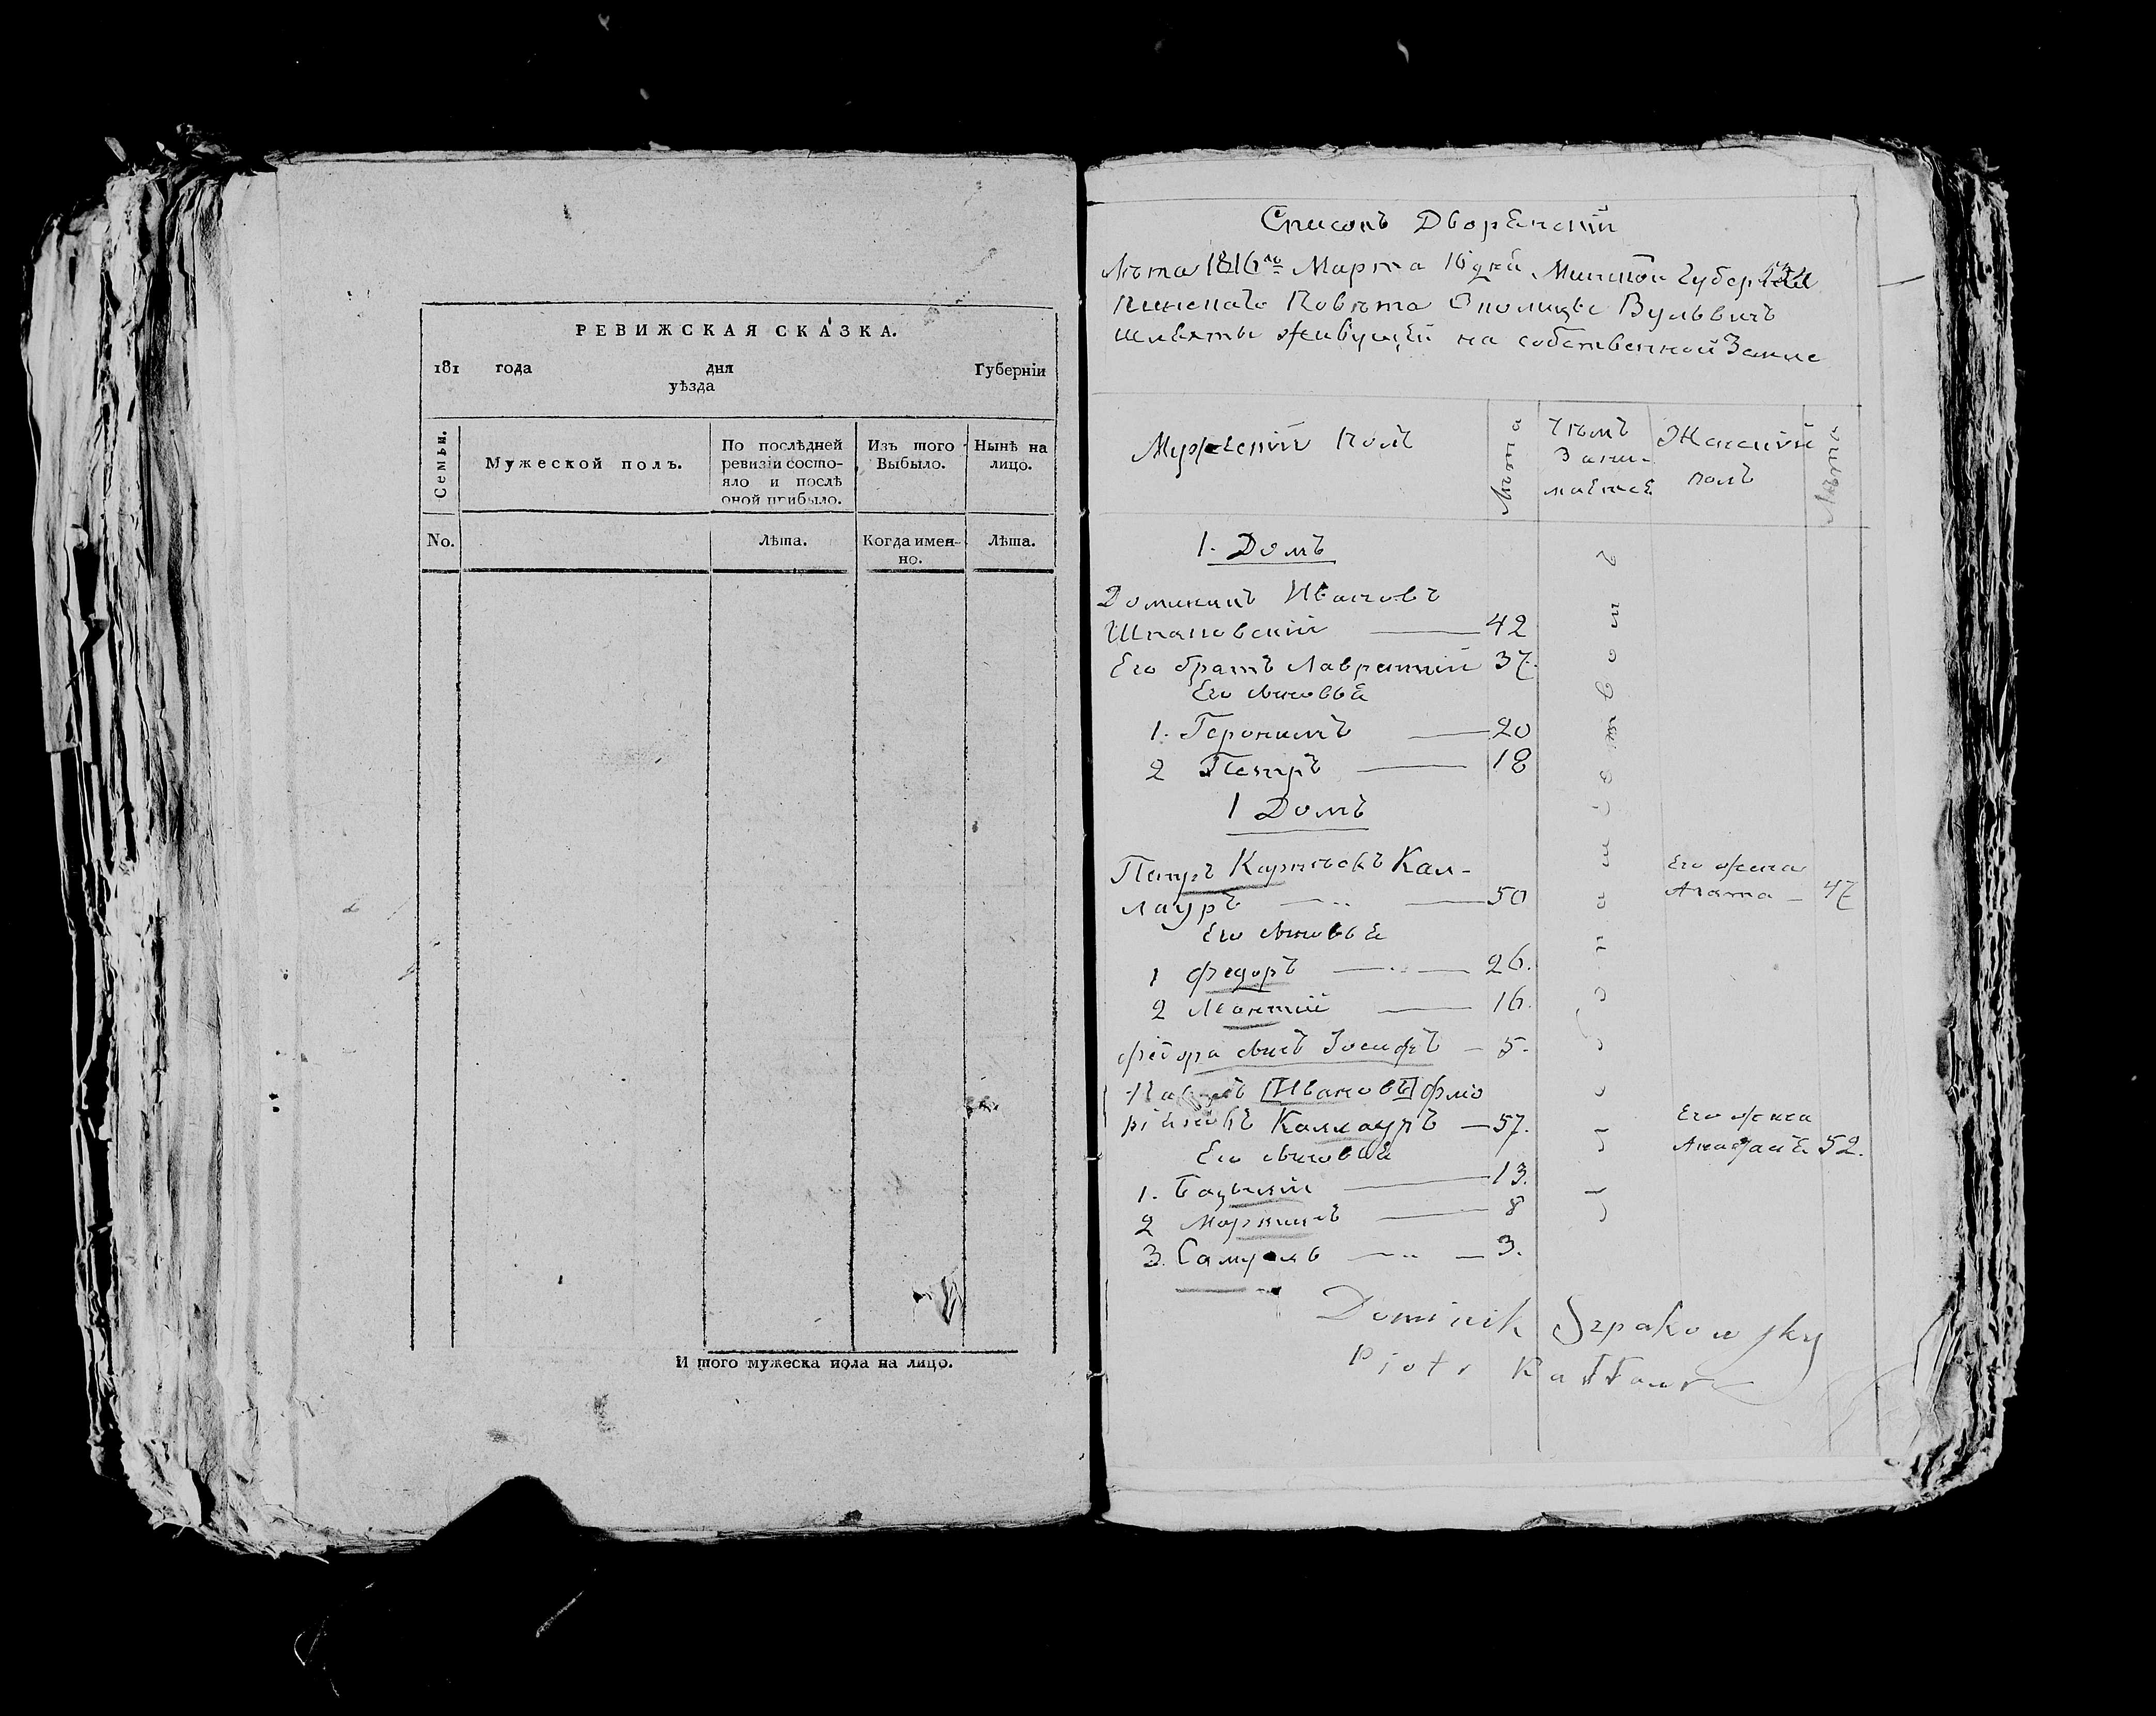 РЕВИЖСКАЯ СКАЗКА.
181 года дня Губерніи
уѣзда
Семьи.
Мужеской полъ.
По послѣдней
ревизіи состо-
яло и послѣ
оной прибыло.
Изъ того
Выбыло.
Нынѣ на
лицо.
No.
Лѣта.
Когда имен-
но.
Лѣта.
И того мужеска пола на лицо.
Списокъ Дворянскій
Лѣта 1816го Марта 16 дня Минской Губерніи
Пинскаго Повѣта Околицы Вульвичъ
Шляхты живущей на собственной Земле
Мужескій полъ
Лѣта
Чѣмъ
Зани-
мается
Женскій
полъ
Лѣта
1. Домъ
Доминикъ Ивановъ
Шпаковскій 42
Его братъ Лаврентій 37.
Его сыновья
1. Геронимъ 20
2 Петръ 18
1 Домъ
Петръ Карпъевъ Кал-
лауръ 50
Его жена
Агата 47
Его сыновья
1 Федоръ 26.
2 Леонтій 16.
Федора сынъ Іосифъ 5.
[Ивановъ] Фло
ріановъ Каллауръ 57.
Его жена
52.
Его сыновья
1. 13.
2 Мартинъ 8
3. Самуель 3.
Хлебопашествомъ
Dominik Szpakowsky
Piotr Kałłaur